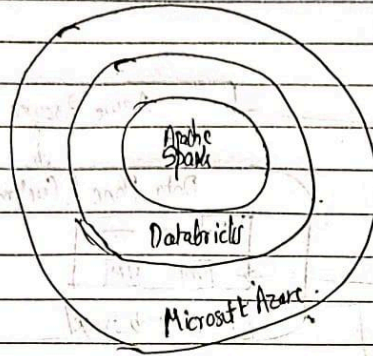 Apache
Spark
Databricks
Microsoft Azure.